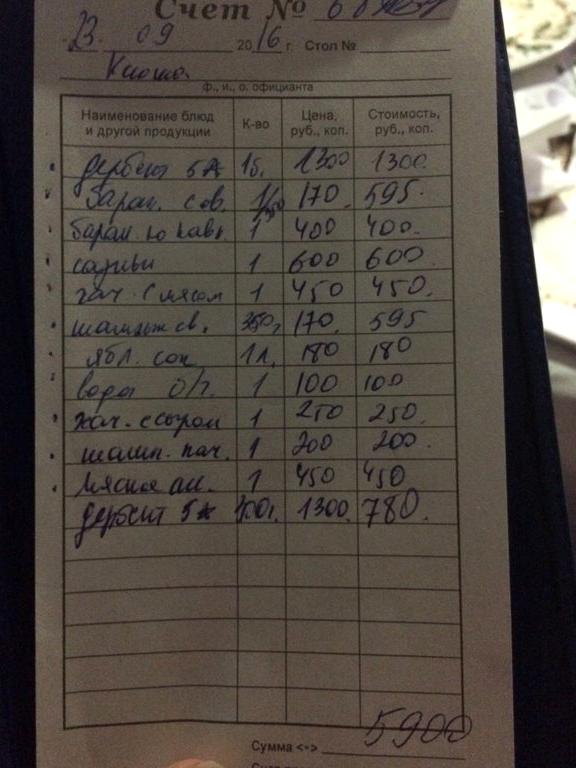 Счет №
23 09 2016 г. Стол №
ф., и., о. официанта
Наименование блюд и другой продукции К-во Цена, руб., коп. Стоимость, руб., коп.
дербент 5* 1б. 1300 1300.
баран. св. 170. 595.
баран. по кавк. 1 400 400.
1 600 600.
хач. с мясом 1 450 450.
шампин св. 350г. 170. 595
ябл. сок 1л. 180 180
вода 1 100 100
хач. с сыром 1 250 250.
шамп. 1 200 200.
мясное ас. 1 450 450
дербент 5* 300г. 1300. 780.
Сумма <=> 5900